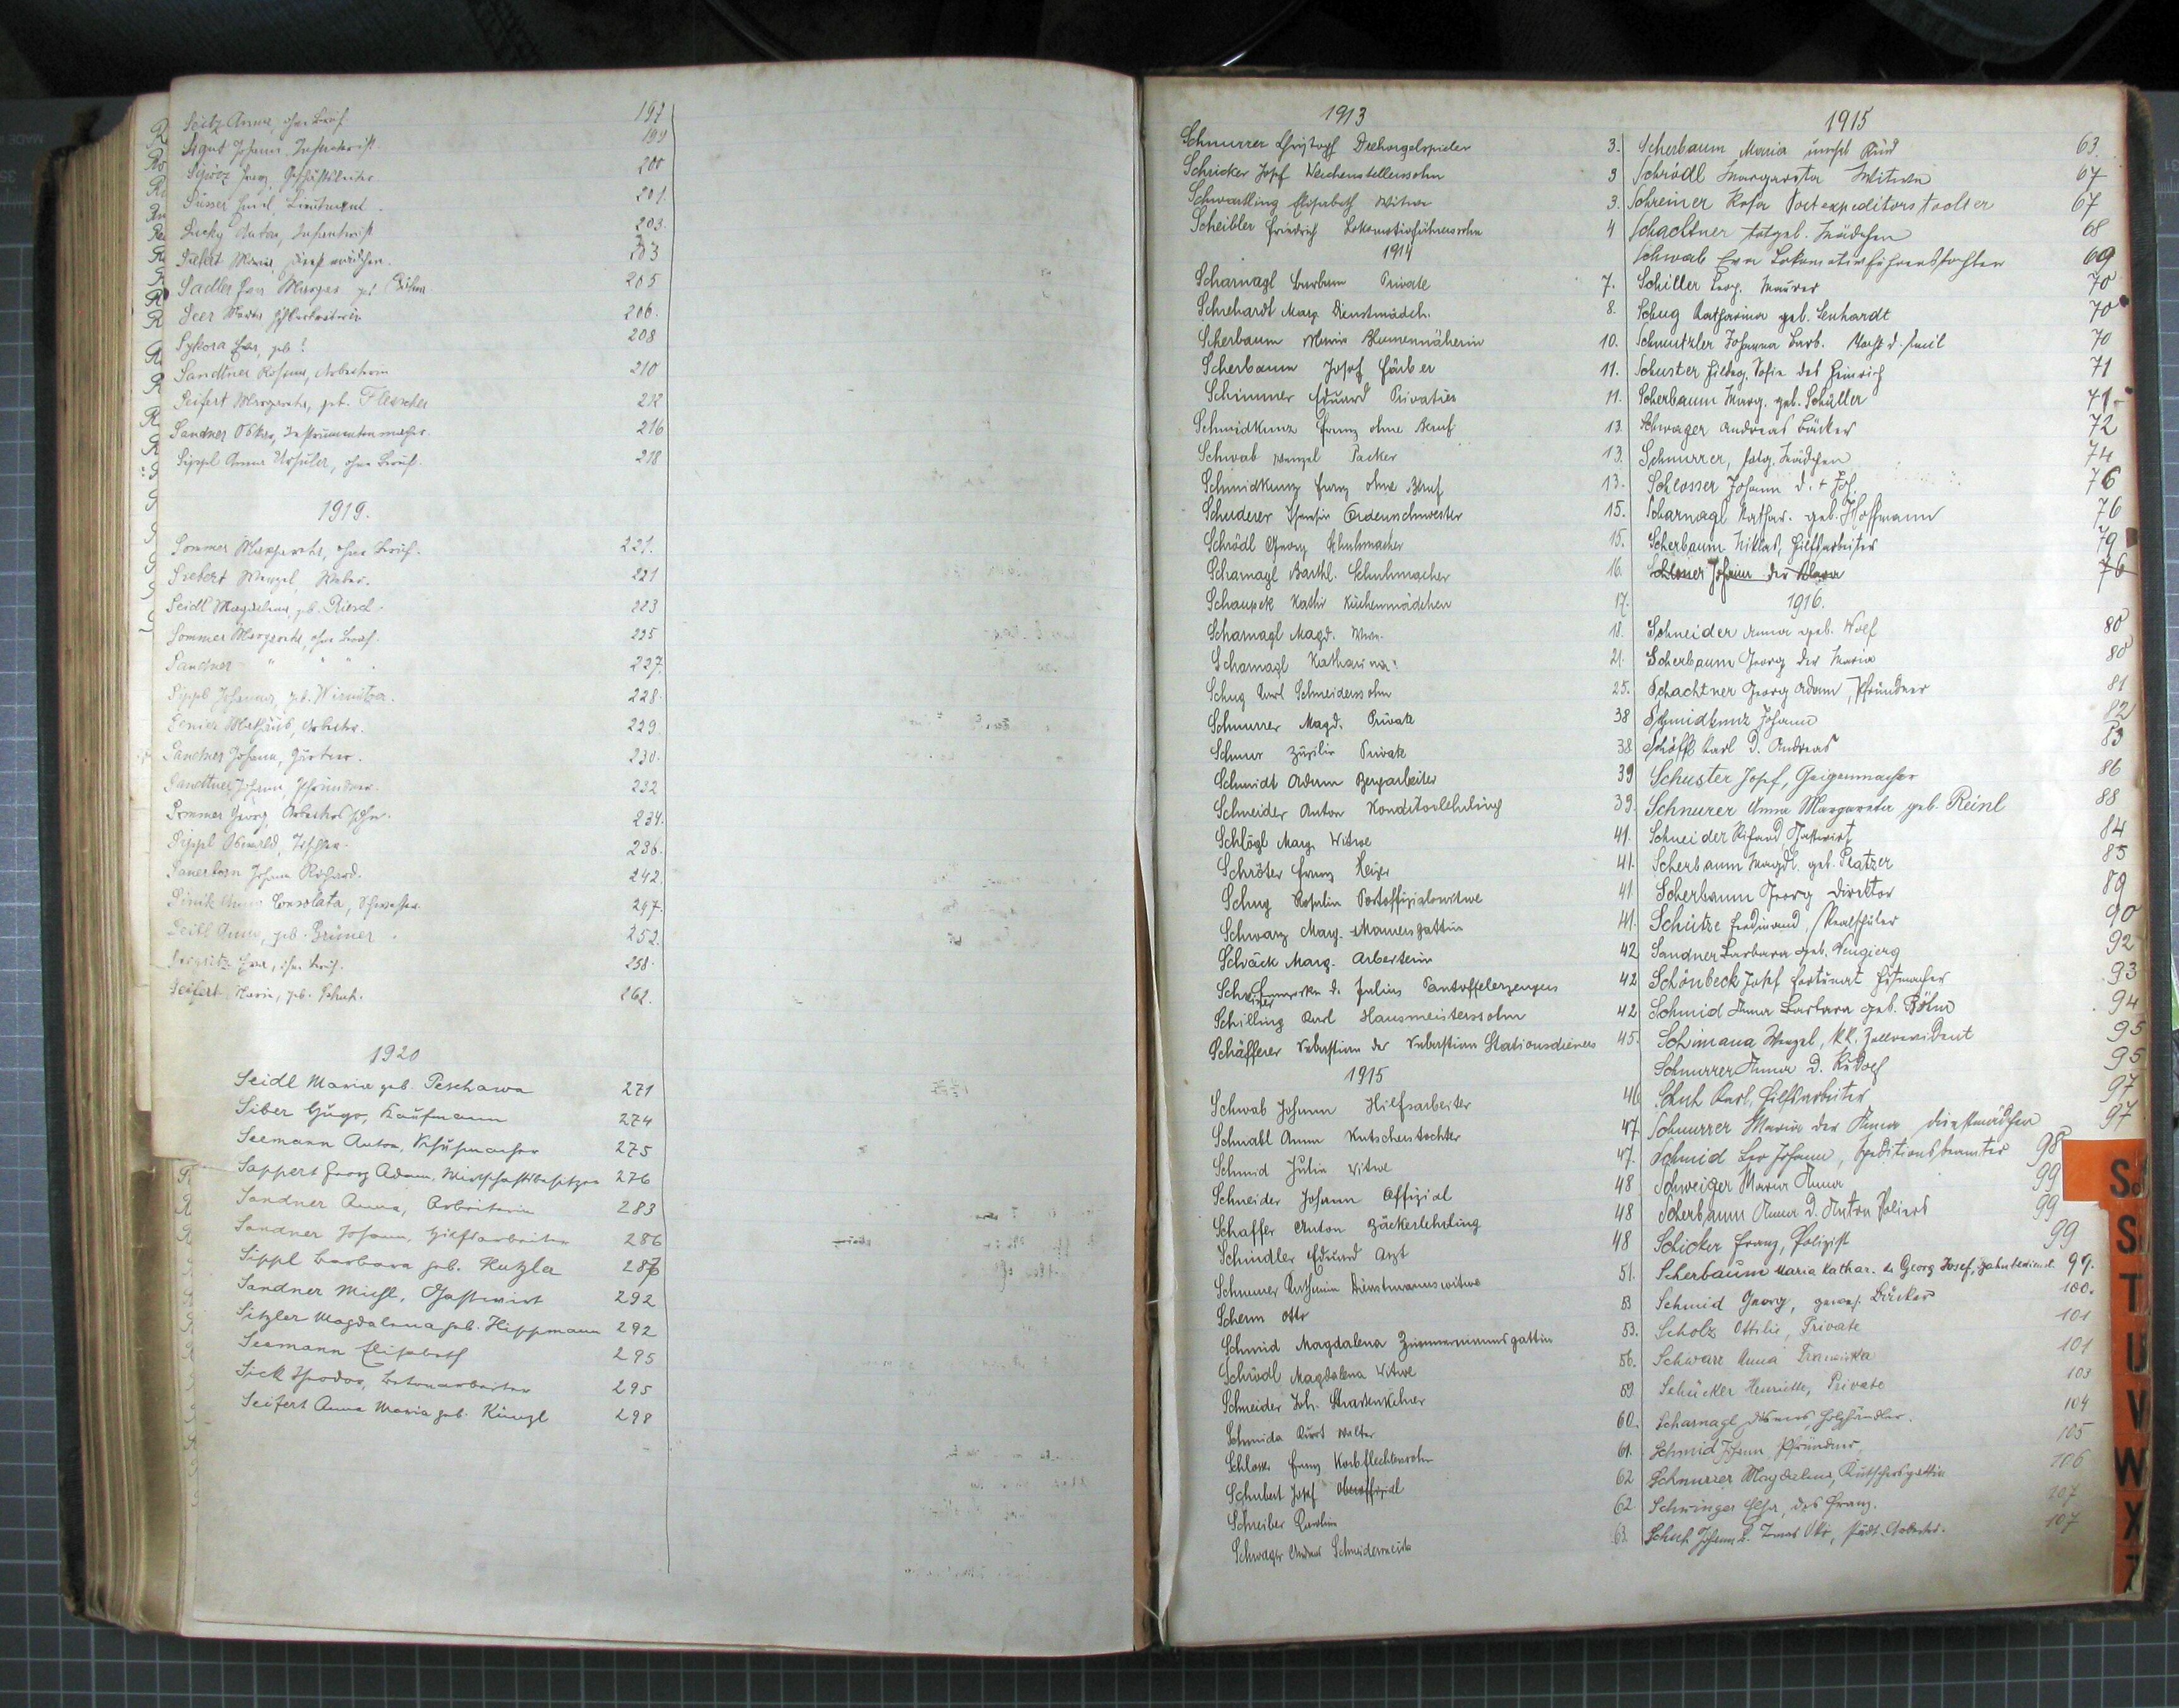 Seitz Anna, ohne Beruf 197
Johann, Infanterist 199
Geschäftsleiter 200
Süsser Emil, Lieutenant. 201
Sucky Anton, Infanterist 203.
Maria, Dienstmädchen. 203
Sadler Eva Marg. geb. 205
Seer 206.
Sykora Eva, geb. 208
Sandtner Rosina, Arbeiterin 210
Seifert Margareta, geb. Fleischer 212
Sandner Oskar, Instrumentenmacher. 216
Sippl Anna Ursula, ohne Beruf. 218
1919.
Sommer Margareta, ohne Beruf. 221.
Siebert Wenzel, Weber. 221
Seidl Magdalena, geb. Riesel. 223
Sommer Margareta, ohne Beruf. 225
Sandner " " " . 227.
Sippl Johanna, geb. 228.
Mathäus, Arbeiter. 229.
Sandner Johann, Gärtner. 230.
Sandtner Johann, Pfründner. 232
Sommer Georg Arbeiterssohn. 234.
Sippl Oswald, Tischler. 236.
Johann Richard. 242.
Consolata, Schwester. 247.
Seidl Anna, geb. Grüner. 252.
Eva, ohne Beruf. 258.
Seifert Maria, geb. Schuh. 262.
1920
Seidl Maria geb. Peschawa 271
Siber Hugo, Kaufmann 274
Seemann Anton, Schuhmacher 275
Sappert Georg Adam, Wirtschaftsbesitzer 276
Sandner Anna, Arbeiterin 283
Sandner Johann, Hilfsarbeiter 286
Sippl Barbara geb. Kuzla 286
Sandner Michl, Gastwirt 292
Sitzler Magdalena geb. Hippmann 292
Seemann Elisabeth 295
Sick Isodor, Betonarbeiter 295
Seifert Anna Maria geb. Künzl 298
1913
Schnurrer Christoph Drehorgelspieler 3.
Schricker Josef Weichenstellerssohn 3
Schwartling Elisabeth Witwe 3.
Scheibler Friedrich Lokomotivführerssohn 4
1914
Scharnagl Barbara Private 7.
Schrehardt Marg. Dienstmädch. 8.
Scherbaum Maria Blumennäherin 10.
Scherbaum Josef Färber 11.
Schimmer Eduard Privatier 11.
Schmidkunz Franz ohne Beruf 13.
Schwab Wenzel Packer 13.
Schmidkunz Franz ohne Beruf 13.
Schuderer Ordenschwester 15.
Schrödl Georg Schuhmacher 15.
Scharnagl Barthl. Schuhmacher 16.
Schaupek Kathi Küchenmädchen 17.
Scharnagl Magd. Wwe. 18.
Scharnagl Katharina. 21.
Schug Karl Schneiderssohn 25.
Schnurrer Magd. Private 38
Schnur Zäzilie Private 38
Schmidt Adam Bergarbeiter 39
Schneider Anton Konditorlehrling 39.
Schlögl Marg. Witwe 41.
Schröter Franz Heizer 41.
Schug Rosalin Postoffizialswitwe 41
Schwarz Marg. Maurersgattin 41.
Schräck Marg. Arbeiterin 42
d. Julius Pantoffelerzeugers 42
Schilling Karl Hausmeisterssohn 42
Schäfferer Sebastian der Sebastian Stationsdieners 45.
1915
Schwab Johann Hilfsarbeiter 46
Schnabl Anna Kutscherstochter 47.
Schmid Julia Witwe 47.
Schneider Johann Offizial 48
Schaffer Anton Bäckerlehrling 48
Schindler Eduard Arzt 48
Schnurrer Katharina Dienstmannswitwe 51.
Scherm Otto 53
Schmid Magdalena Zimmermannsgattin 53.
Schrödl Magdalena Witwe 56.
Schneider Joh. Strassenkehrer 59
Schmida Kurt Walter 60.
Schlosser Franz Korbflechterssohn 61.
Schubert Josef Oberoffizial 62
Schreiber Karolina 62
Schwager Andreas Schneidermeister 63.
1915
Scherbaum Maria unehl Kind 63.
Schrödl Margareta Witwe 67
Schreiner Rosa Postexpeditorstochter 67
Schachtner totgeb. Mädchen 68
Schwab Eva Lokomotivführerstochter 69
Schiller Georg. Maurer 70
Schug Katharina geb. Lenhardt 70
Schmutzler Johanna Barb. Tocht. d. Emil 70
Schuster Hildeg. Sofie des Heinrich 71
Scherbaum Marg. geb. Schaller 71.
Schwager Andreas Bäcker 72
Schnurrer, totg. Mädchen 74
Schlosser Johann d. + Joh. 76
Scharnagl Kathar. geb. Hoffmann 76
Scherbaum Niklas, Hilfsarbeiter 79
Schlosser Johann der 76
1916.
Schneider Anna geb. Wolf 80
Scherbaum Georg der Maria 80
Schachtner Georg Adam, Pfründner 81
Schmidkunz Johann 82
Schöffl Karl D. Andreas 83
Schuster Josef, Geigenmacher 86
Schnurer Anna Margareta geb. Reinl 88
Schneider Richard Gastwirt 84
Scherbaum Magdl. geb. Platzer 85
Scherbaum Georg Direktor 89
Schütze Ferdinand, Realschüler 90
Sandner Barbara geb. Wengierg 92
Schönbeck Josef Fortunat Hutmacher 93
Schmid Anna Barbara geb. Böhm 94
Schimana Wenzel, kk. Zollrevident 95
Schnurrer Anna D. Rudolf 95
Schuh Karl, Hilfsarbeiter 97
Schnurrer Maria der Anna Dienstmädchen 97
Schmid Leo Johann, Speditionsbeamter 98
Schweiger Maria Anna 99
Scherbaum Anna D. Anton Poliers 99
Schicker Franz, Polizist 99
Scherbaum Maria Kathar. de Georg Josef, Bahnbedienst. 99.
Schmid Georg, gewes. Bäcker 100.
Scholz Ottilie, Private 101
Schwarz Anna Franziska 101
Schücker Henriette, Private 103
Scharnagl Holzhändler. 104
Schmid Johann Pfründner, 105
Schnurrer Magdalena, Kutschersgattin 106
Schwinger Elsa, des Franz. 107
Schuh Johann d. städt. Arbeiter. 107
Sch
S
T
U
V
W
X
Z